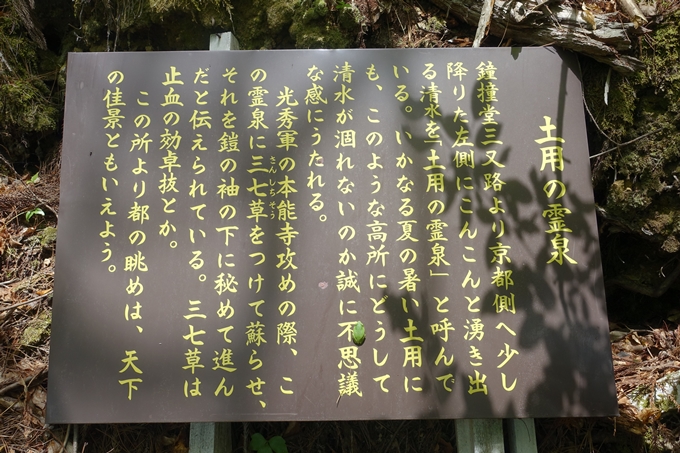 土用の霊泉
鐘撞堂三又路より京都側へ少し
降りた左側にこんこんと湧き出
る清水を「土用の霊泉」と呼んで
いる。いかなる夏の暑い土用に
も、このような高所にどうして
清水が涸れないのか誠に不思議
な感にうたれる。
光秀軍の本能寺攻めの際、こ
の霊泉に三七草をつけて蘇らせ、
さんしちそう
それを鎧の袖の下に秘めて進ん
だと伝えられている。三七草は
止血の効卓抜とか。
この所より都の眺めは、天下
の佳景ともいえよう。